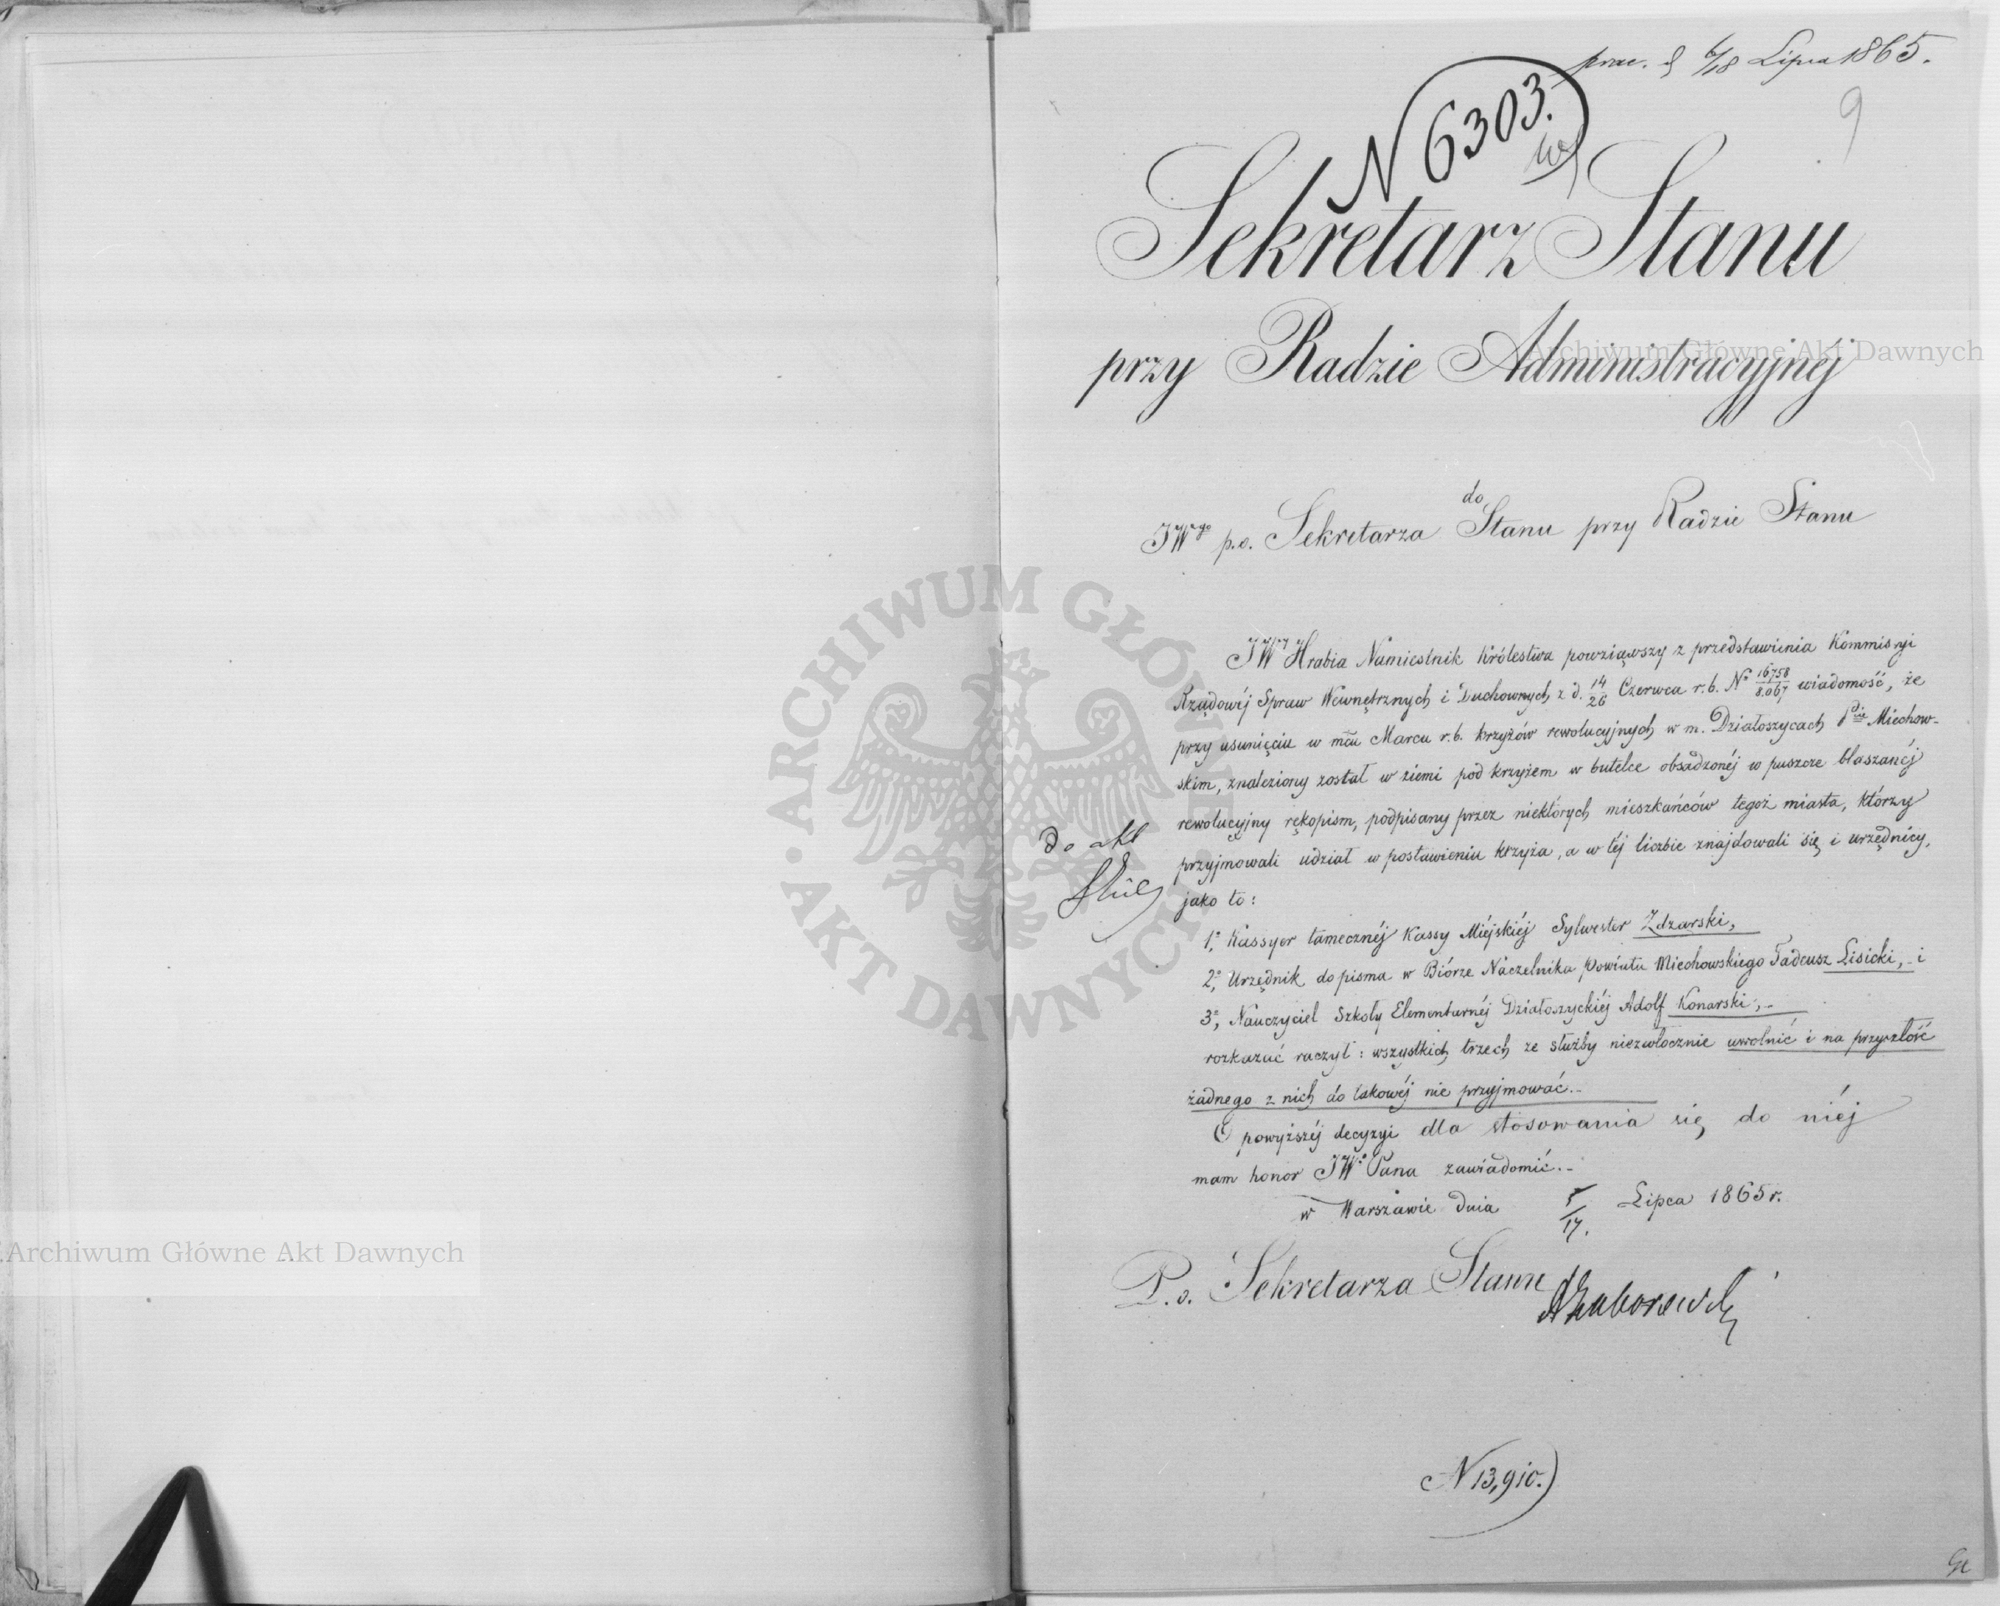 prac. d 6/18 Lipca 1865.
N 6303.
9
Sekretarz Stanu
przy Radzie Administracyjnéj
do
JWgo p.o. Sekretarza Stanu przy Radzie Stanu
JWy Hrabia Namiestnik Królestwa powziąwszy z przedstawienia Kommisyi
Rządowéj Spraw Wewnętrznych i Duchownych z d. 14/26 Czerwca r.b. No 16758/8.067 wiadomość, że
przy usunięciu w mcu Marcu r.b. krzyżów rewolucyjnych w m. Działoszycach Pcie Miechow-
skim, znaleziony został w ziemi pod krzyżem w butelce obsadzonéj w puszce blaszanéj
rewolucyjny rękopism, podpisany przez niektórych mieszkańców tegoż miasta, którzy
przyjmowali udział w postawieniu krzyża, a w téj liczbie znajdowali się i urzędnicy,
jako to:
1o, Kassyer tamecznéj Kassy Miéjskiéj Sylwester Zdzarski,
2o, Urzędnik do pisma w Biórze Naczelnika Powiatu Miechowskiego Tadeusz Lisicki, i
3o, Nauczyciel Szkoły Elementarnéj Działoszyckiéj Adolf Konarski,
rozkazać raczył: wszystkich trzech ze służby niezwłocznie uwolnić i na przyszłość
żadnego z nich do takowéj nie przyjmować.
O powyższéj decyzyi dla stosowania się do niéj
mam honor JWo Pana zawiadomić.
w Warszawie dnia 5/17. Lipca 1865 r.
do akt
P.o. Sekretarza Stanu
AZaborowski
N 13,910.
Archiwum Główne Akt Dawnych
Archiwum Główne Akt Dawnych
ARCHIWUM GŁÓWNE AKT DAWNYCH